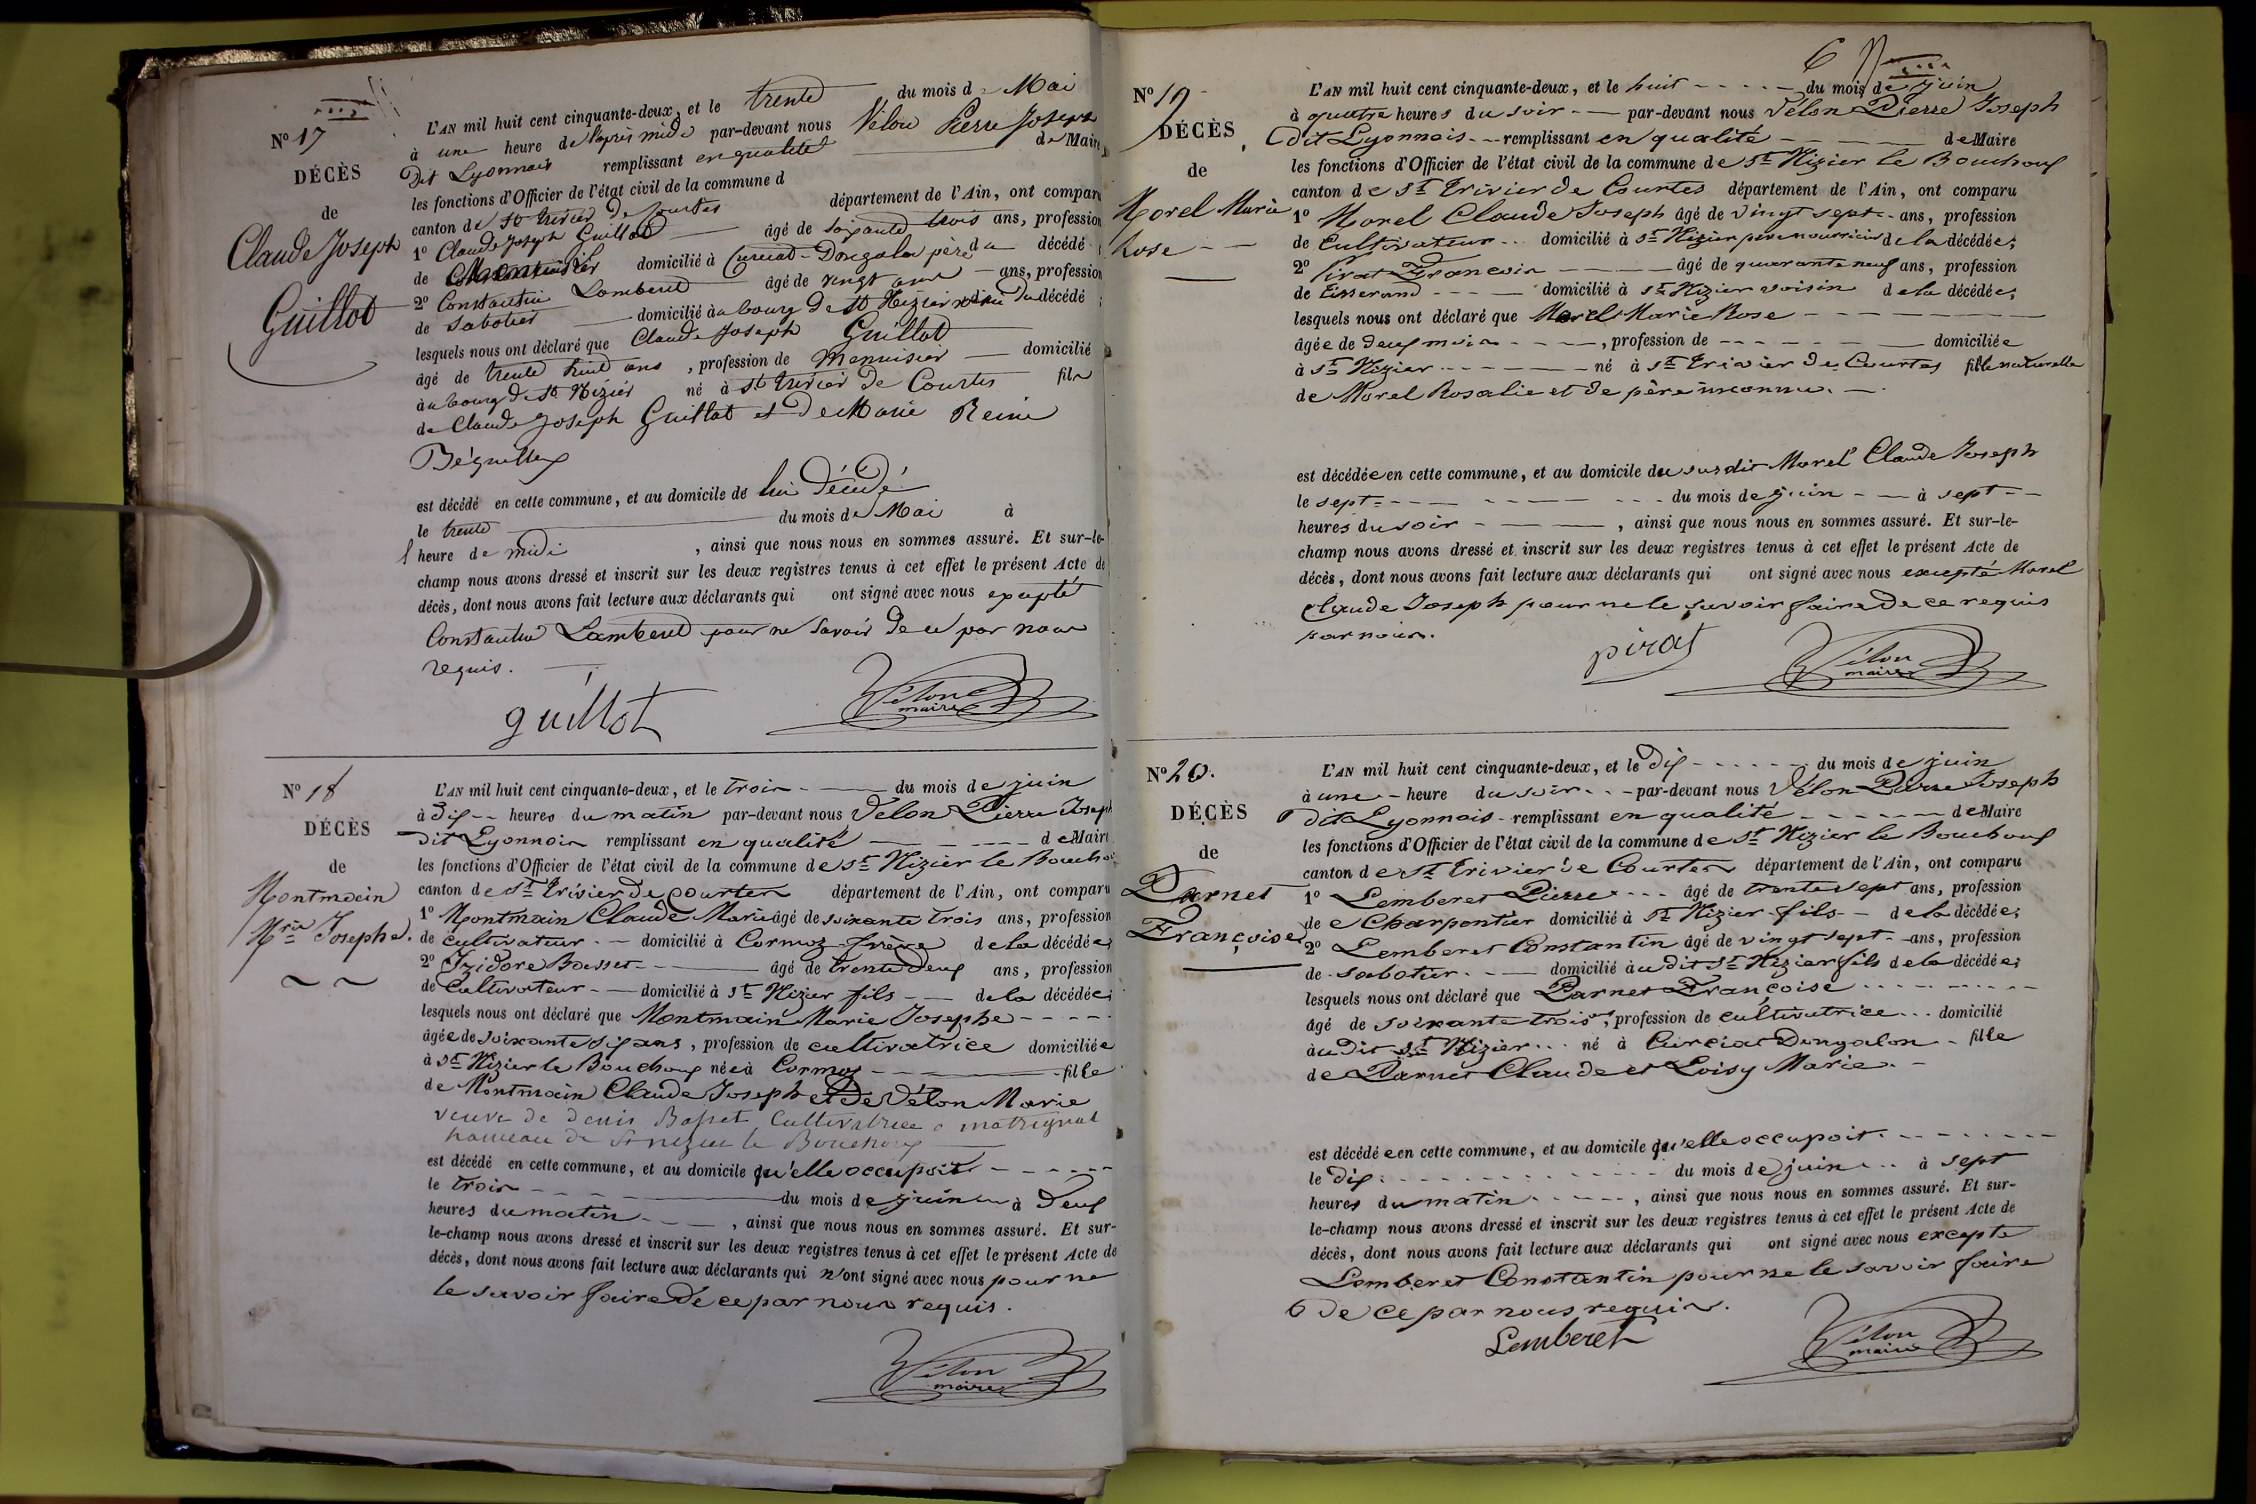 N° 17
DÉCÈS
de
Claude Joseph
Guillot
L'AN mil huit cent cinquante-deux, et le trente du mois de Mai
à une heure de l'après midi par-devant nous Vélon Pierre Joseph
Dit Lyonnais remplissant en qualité de Maire
les fonctions d'Officier de l'état civil de la commune d
canton de St Trivier de Courtes département de l'Ain, ont comparu
1° Claude Joseph Guillot âgé de soixante trois ans, profession
de Menuisier domicilié à Curciat-Dongalon père du décédé
2° Constantin Lamberet âgé de vingt ans, profession
de sabotier domicilié au bourg de St Nizier voisin du décédé ;
lesquels nous ont déclaré que Claude Joseph Guillot
âgé de trente huit ans, profession de Menuisier domicilié
au bourg de St Nizier né à St Trivier de Courtes fils
de Claude Joseph Guillot et de Marie Reine
est décédé en cette commune, et au domicile de lui décédé
le trente du mois de Mai à
1 heure de midi , ainsi que nous nous en sommes assuré. Et sur-le-
champ nous avons dressé et inscrit sur les deux registres tenus à cet effet le présent Acte de
décès, dont nous avons fait lecture aux déclarants qui ont signé avec nous excepté
Constantin Lamberet pour ne savoir de ce par nous
requis.
guillot
Vélon
maire
N° 18
DÉCÈS
de
Montmain
Mrie Josephe.
L'AN mil huit cent cinquante-deux, et le trois du mois de juin
à dix heures du matin par-devant nous Vélon Pierre Joseph
dit Lyonnois remplissant en qualité de Maire
les fonctions d'Officier de l'état civil de la commune de St Nizier le Boucho
canton de St Trivier de Courtes département de l'Ain, ont comparu
1° Montmain Claude Marie âgé de soixante trois ans, profession
de cultivateur domicilié à Cormoz frère de la décédée;
2° Izidore Basset âgé de trente deux ans, profession
de Cultivateur domicilié à St Nizier fils de la décédée;
lesquels nous ont déclaré que Montmain Marie Josephe
âgée de soixante six ans, profession de cultivatrice domiciliée
à St Nizier le Bouchoux née à Cormoz fille
de Montmain Claude Joseph et de Vélon Marie
veuve de denis Basset Cultivatrice a matrignat
hameau de St nizier le Bouchoux
est décédé en cette commune, et au domicile qu'elle occupoit
le trois du mois de juin à deux
heures du matin , ainsi que nous nous en sommes assuré. Et sur-
le-champ nous avons dressé et inscrit sur les deux registres tenus à cet effet le présent Acte de
décès, dont nous avons fait lecture aux déclarants qui n'ont signé avec nous pour ne
le savoir faire de ce par nous requis.
Vélon
maire
6
N° 19
DÉCÈS
de
Morel Marie
Rose
L'AN mil huit cent cinquante-deux, et le huit du mois de juin
à quatre heures du soir par-devant nous Vélon Pierre Joseph
dit Lyonnois remplissant en qualité de Maire
les fonctions d'Officier de l'état civil de la commune de St Nizier le Bouchoux
canton de St Trivier de Courtes département de l'Ain, ont comparu
1° Morel Claude Joseph âgé de vingt sept ans, profession
de Cultivateur domicilié à St Nizier père nourricier de la décédée;
2° Pirat François âgé de quarante neuf ans, profession
de tisserand domicilié à St Nizier voisin de la décédée;
lesquels nous ont déclaré que Morel Marie Rose
âgée de deux mois , profession de domiciliée
à St Nizier né à St Trivier de Courtes fille naturelle
de Morel Rosalie et de père inconnu.
est décédée en cette commune, et au domicile du susdit Morel Claude Joseph
le sept du mois de juin à sept
heures du soir , ainsi que nous nous en sommes assuré. Et sur-le-
champ nous avons dressé et inscrit sur les deux registres tenus à cet effet le présent Acte de
décès, dont nous avons fait lecture aux déclarants qui ont signé avec nous excepté Morel
Claude Joseph pour ne le savoir faire de ce requis
par nous.
pirat
Vélon
maire
N° 20.
DÉCÈS
de
Darnet
Françoise
L'AN mil huit cent cinquante-deux, et le dix du mois de juin
à une heure du soir par-devant nous Vélon Pierre Joseph
dit Lyonnais remplissant en qualité de Maire
les fonctions d'Officier de l'état civil de la commune de St Nizier le Bouchoux
canton de St Trivier de Courtes département de l'Ain, ont comparu
1° Lemberet Pierre âgé de trente sept ans, profession
de Charpentier domicilié à St Nizier fils de la décédée;
2° Lemberet Constantin âgé de vingt sept ans, profession
de sabotier domicilié audit St Nizier fils de la décédée;
lesquels nous ont déclaré que Darnet Françoise
âgé de soixante trois ans, profession de cultivatrice domicilié
audit St Nizier né à Curciat Dongalon fille
de Darnet Claude et Loisy Marie.
est décédée en cette commune, et au domicile qu'elle occupoit.
le dix du mois de juin à sept
heures du matin , ainsi que nous nous en sommes assuré. Et sur-
le-champ nous avons dressé et inscrit sur les deux registres tenus à cet effet le présent Acte de
décès, dont nous avons fait lecture aux déclarants qui ont signé avec nous excepte
Lemberet Constantin pour ne le savoir faire
de ce par nous requis.
Lemberet
Vélon
maire